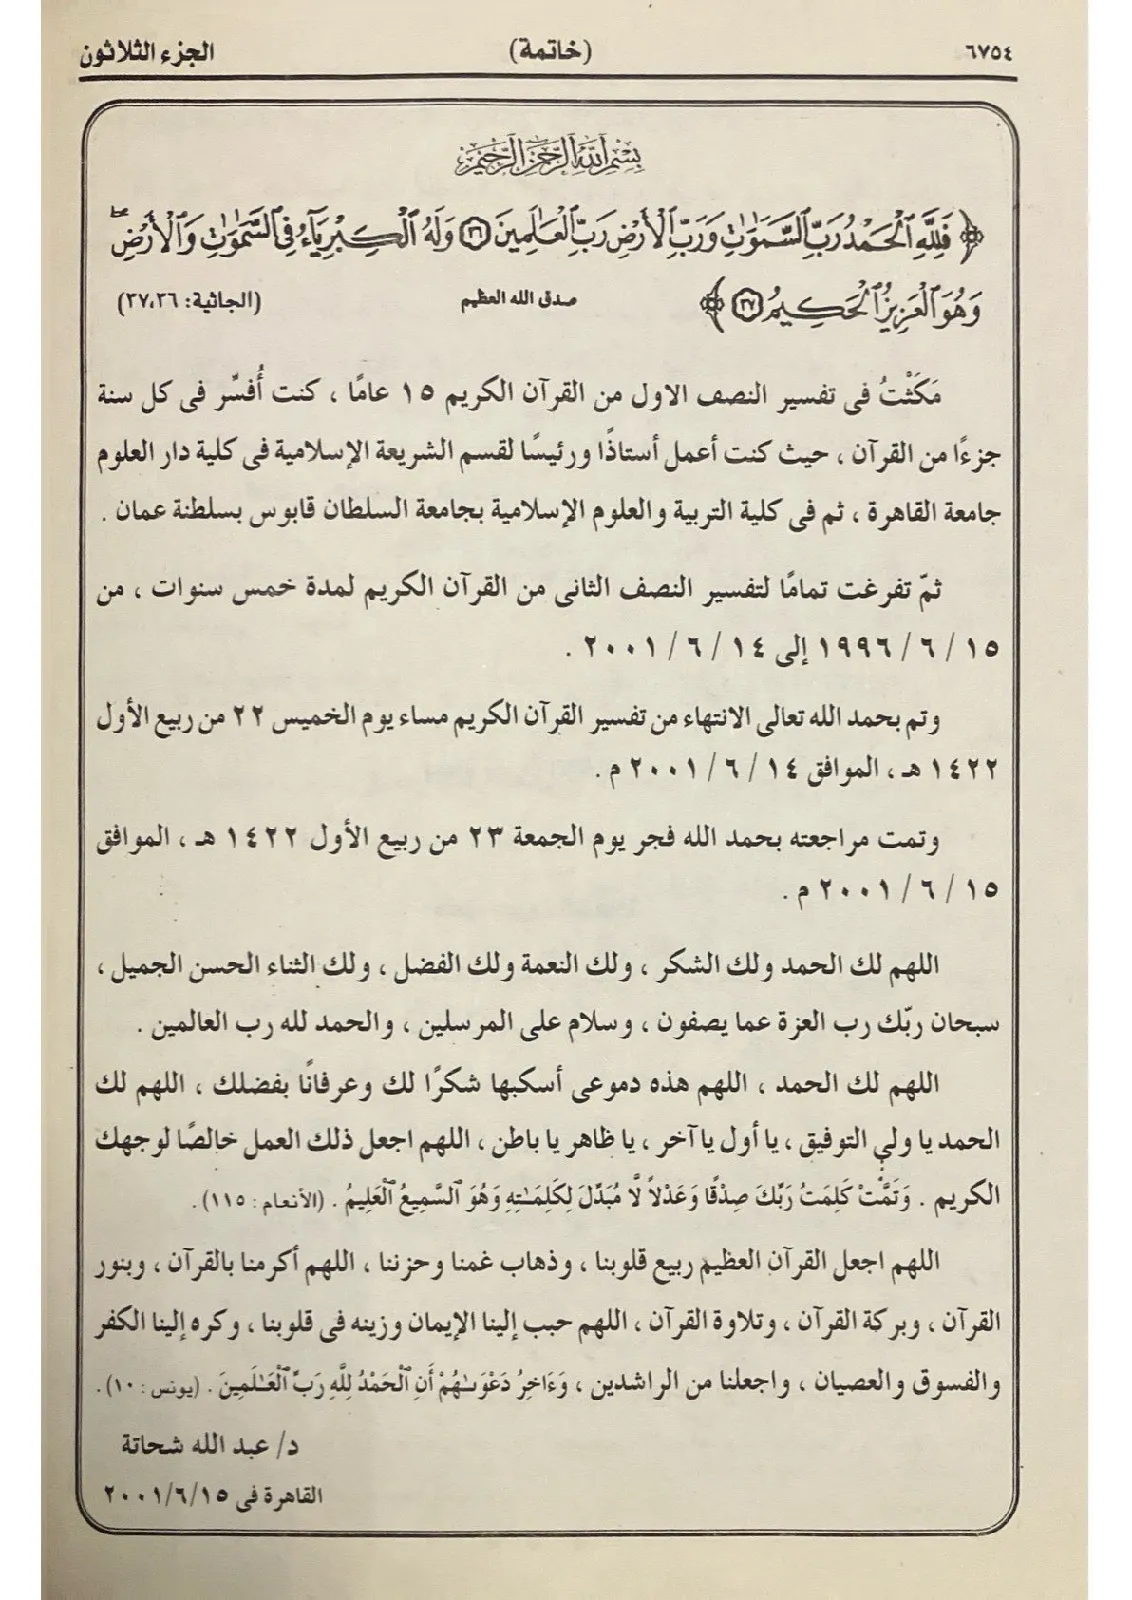 ٦٧٥٤ (خاتمة) الجزء الثلاثون
بِسْمِ اللَّهِ الرَّحْمَٰنِ الرَّحِيمِ
﴿ فَلِلَّهِ ٱلْحَمْدُ رَبِّ ٱلسَّمَٰوَٰتِ وَرَبِّ ٱلْأَرْضِ رَبِّ ٱلْعَٰلَمِينَ ٣٦ وَلَهُ ٱلْكِبْرِيَآءُ فِى ٱلسَّمَٰوَٰتِ وَٱلْأَرْضِ ۖ
وَهُوَ ٱلْعَزِيزُ ٱلْحَكِيمُ ٣٧ ﴾ صدق الله العظيم (الجاثية: ٣٧،٣٦)
مَكَثْتُ فى تفسير النصف الاول من القرآن الكريم ١٥ عامًا ، كنت أُفسِّر فى كل سنة
جزءًا من القرآن ، حيث كنت أعمل أستاذًا ورئيسًا لقسم الشريعة الإسلامية فى كلية دار العلوم
جامعة القاهرة ، ثم فى كلية التربية والعلوم الإسلامية بجامعة السلطان قابوس بسلطنة عمان .
ثمّ تفرغت تمامًا لتفسير النصف الثانى من القرآن الكريم لمدة خمس سنوات ، من
١٥ / ٦ / ١٩٩٦ إلى ١٤ / ٦ / ٢٠٠١ .
وتم بحمد الله تعالى الانتهاء من تفسير القرآن الكريم مساء يوم الخميس ٢٢ من ربيع الأول
١٤٢٢ هـ ، الموافق ١٤ / ٦ / ٢٠٠١ م .
وتمت مراجعته بحمد الله فجر يوم الجمعة ٢٣ من ربيع الأول ١٤٢٢ هـ ، الموافق
١٥ / ٦ / ٢٠٠١ م .
اللهم لك الحمد ولك الشكر ، ولك النعمة ولك الفضل ، ولك الثناء الحسن الجميل ،
سبحان ربّك رب العزة عما يصفون ، وسلام على المرسلين ، والحمد لله رب العالمين .
اللهم لك الحمد ، اللهم هذه دموعى أسكبها شكرًا لك وعرفانًا بفضلك ، اللهم لك
الحمد يا ولي التوفيق ، يا أول يا آخر ، يا ظاهر يا باطن ، اللهم اجعل ذلك العمل خالصًا لوجهك
الكريم . وَتَمَّتْ كَلِمَتُ رَبِّكَ صِدْقًا وَعَدْلاً لَّا مُبَدِّلَ لِكَلِمَٰتِهِ وَهُوَ ٱلسَّمِيعُ ٱلْعَلِيمُ . (الأنعام : ١١٥) .
اللهم اجعل القرآن العظيم ربيع قلوبنا ، وذهاب غمنا وحزننا ، اللهم أكرمنا بالقرآن ، وبنور
القرآن ، وبركة القرآن ، وتلاوة القرآن ، اللهم حبب إلينا الإيمان وزينه فى قلوبنا ، وكره إلينا الكفر
والفسوق والعصيان ، واجعلنا من الراشدين ، وَءَاخِرُ دَعْوَىٰهُمْ أَنِ ٱلْحَمْدُ لِلَّهِ رَبِّ ٱلْعَٰلَمِينَ . (يونس : ١٠) .
د/ عبد الله شحاتة
القاهرة فى ٢٠٠١/٦/١٥